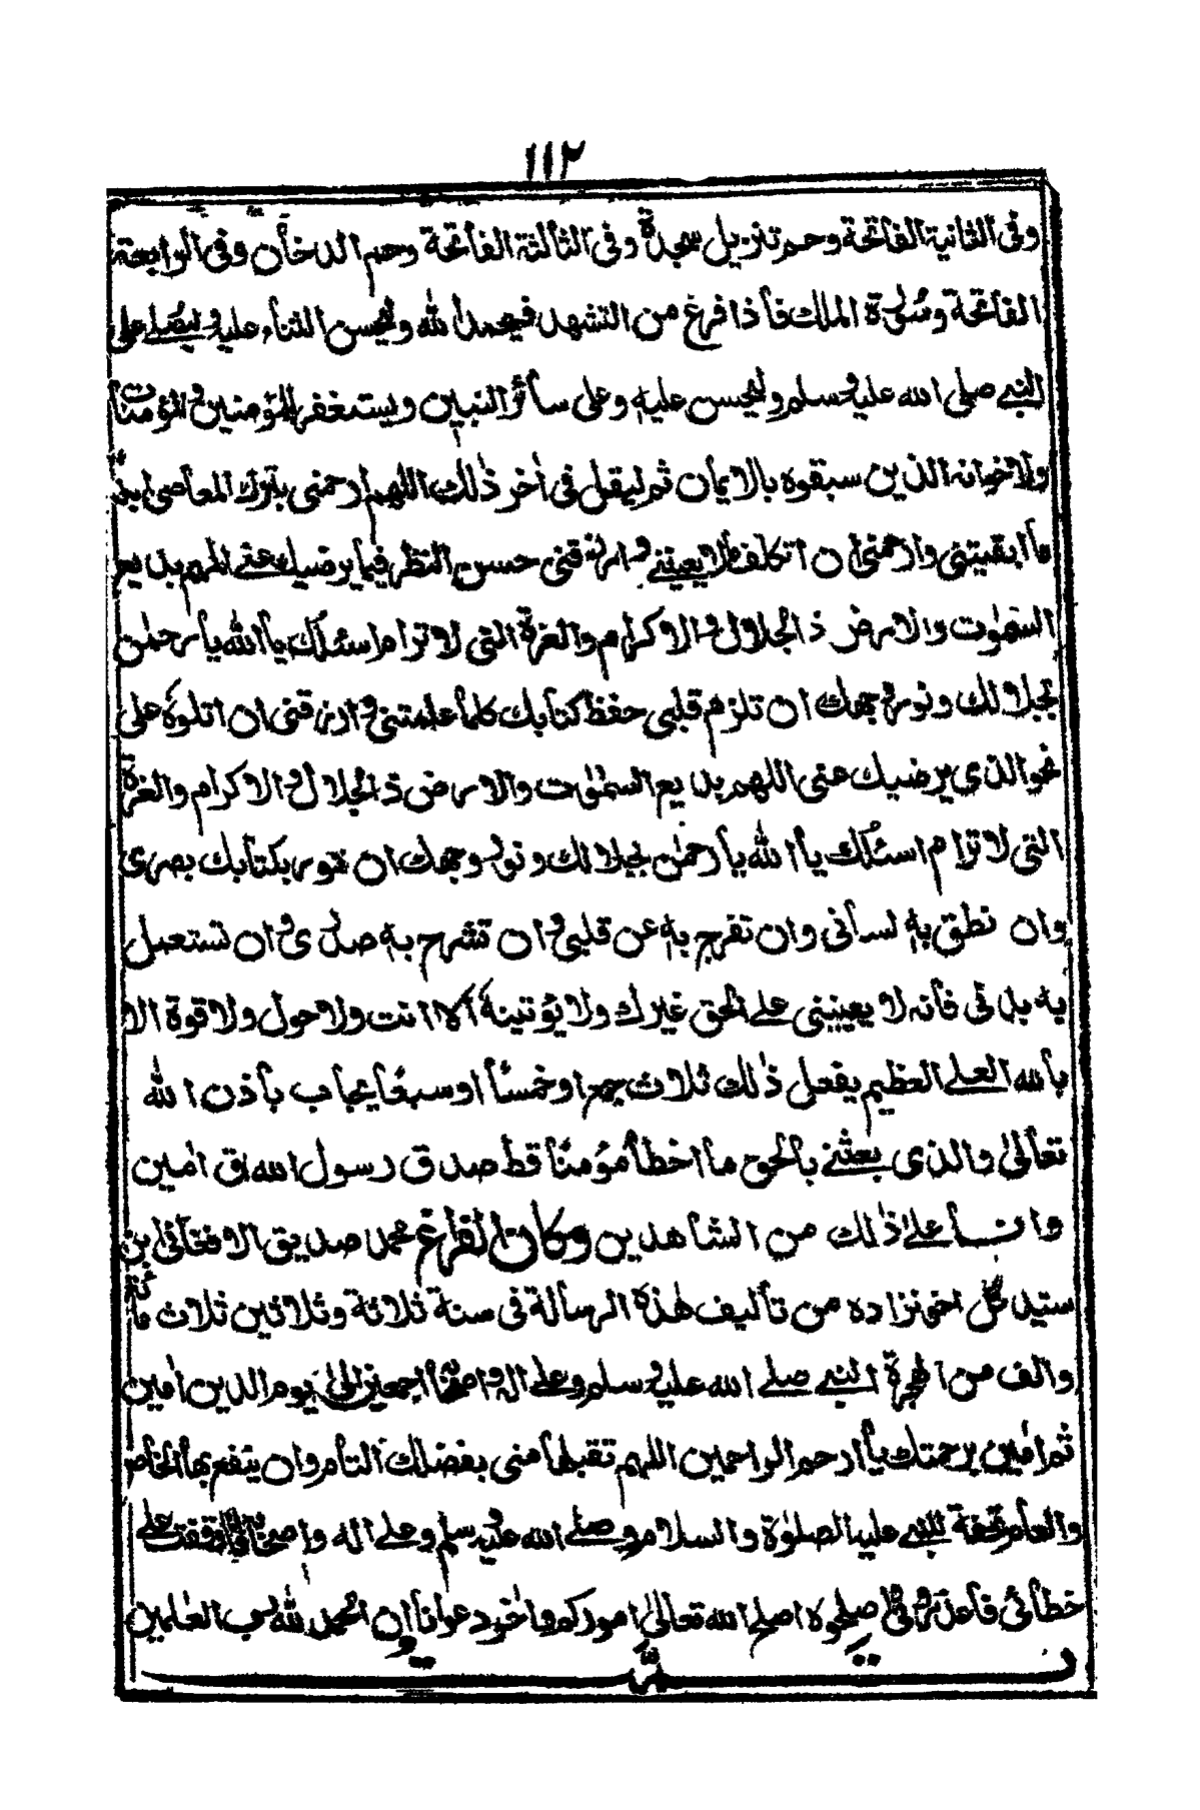 ١١٢
وفى الثانية الفاتحة وحم تنزيل سجدة وفى الثالثة الفاتحة وحم الدخان وفى الرابعة
الفاتحة وسورة الملك فاذا فرغ من التشهد فيحمد الله وليحسن الثناء عليه وليصلے على
النبے صلى الله عليه وسلم وليحسن عليه وعلى سائر النبيين ويستغفر للمؤمنين والمؤمنات
ولاخوانه الذين سبقوه بالايمان ثم ليقل فى اٰخر ذٰلك اللهم ارحمنى بترك المعاصى ابدًا
ما ابقيتنى وارحمنى ان اتكلف مالا يعينے وارزقنى حسن النظر فيما يرضيك عنے اللهم بديع
السمٰوٰت والارض ذا الجلال والاكرام والعزة التى لاترام اسئلك يا الله يا رحمٰن
بجلالك ونور وجهك ان تلزم قلبى حفظ كتابك كما علمتنى وارزقنى ان اتلوه على
نحو الذى يرضيك عنى اللهم بديع السمٰوٰت والارض ذا الجلال والاكرام والعزة
التى لاترام اسئلك يا الله يا رحمٰن بجلالك ونور وجهك ان تنور بكتابك بصرى
وان تطق به لسانى وان تفرج به عن قلبى وان تشرح به صدرى وان تستعمل
به بدنى فانه لا يعيننى علے الحق غيرك ولا يؤتينه الا انت ولا حول ولا قوة الا
بالله العلے العظيم يفعل ذٰلك ثلاث جمع او خمسًا او سبعًا يجاب باذن الله
تعالىٰ والذى بعثنے بالحق ما اخطأ مؤمنًا قط صدق رسول الله امين
وانا علےٰ ذٰلك من الشاهدين وكان الفراغ محمد صديق الافغانى بن
سيد گل اخونزاده من تأليف هٰذه الرسالة فى سنة ثلاثة وثلاثين ثلاث مائة
والف من الهجرة النبے صلے الله عليه وسلم وعلے اله واصحابه اجمعين الىٰ يوم الدين اٰمين
ثم اٰمين برحمتك يا ارحم الراحمين اللهم تقبلها منى بفضلك التام وان ينفع بها الخاص
والعام تحفة للنبے عليه الصلوٰة والسلام وصلے الله عليه وسلم وعلے اله واصحابه وقفت علے
خطائى اصلحوه اصلح الله تعالىٰ اموركم واٰخر دعوانا ان الحمد لله رب العٰلمين